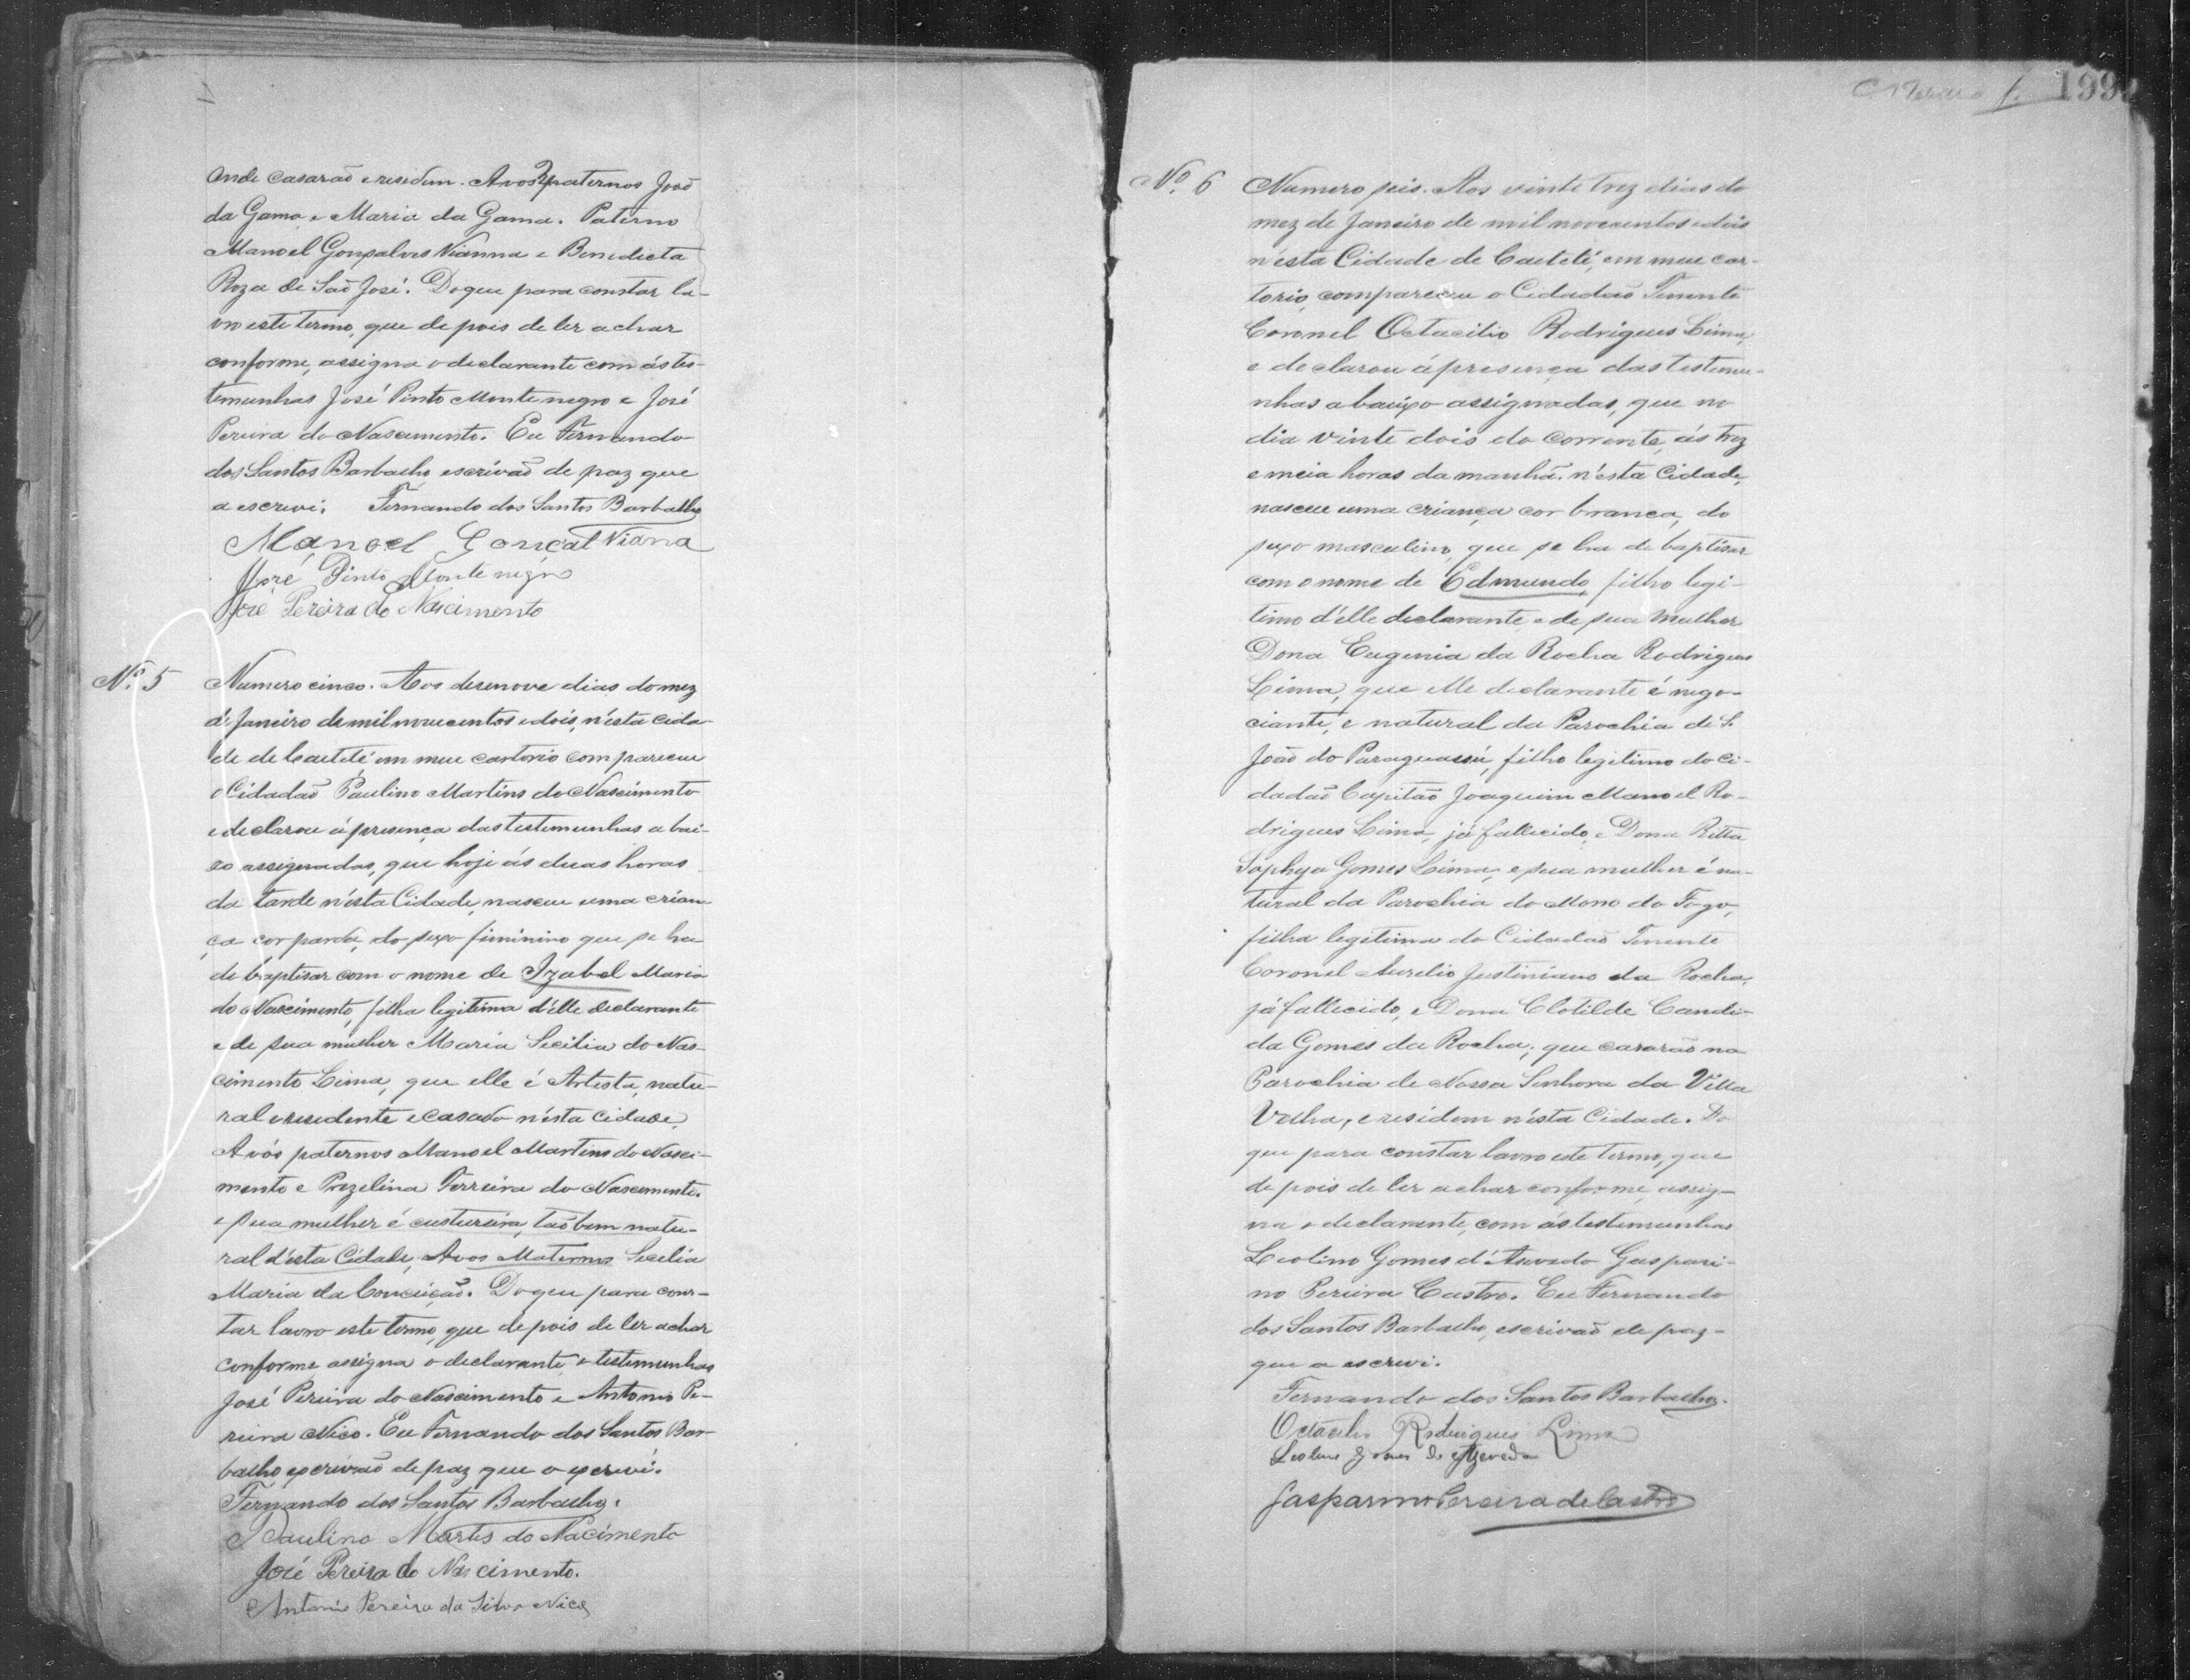 onde casarão e residem. Avos paternos João
da Gama e Maria da Gama. Paterno
Manoel Gonçalves Vianna e Benedicta
Roza de São José. Do que para constar la-
vro este termo, que depois de ler achar
conforme, assigna o declarante com ás tes-
temunhas José Pinto Montenegro e José
Pereira do Nascimento. Eu Fernando
dos Santos Barbalho, escrivaõ de paz que
a escrevi. Fernando dos Santos Barbalho
Manoel Gonçal Viana
José Pinto Montenegro
José Pereira do Nascimento
Nº. 5 Numero cinco. Aos desenove dias do mez
de Janeiro de mil novecentos e dois, n'esta cida-
de de Caeteté em meu cartorio compareceu
o Cidadaõ Paulino Martins do Nascimento
e declarou á presença das testemunhas abai-
xo assignadas, que hoje ás duas horas
da tarde n'esta Cidade, nasceu uma crian-
ça cor parda, do sexo fiminino que se ha
de baptisar com o nome de Izabel Maria
do Nascimento, filha legitima d'elle declarante
e de sua mulher Maria Secilia do Nas-
cimento Lima, que elle é Artista, natu-
ral e residente e casado n'esta Cidade.
Avós paternos Manoel Martins do Nasci-
mento e Prezelina Ferreira do Nascimento.
e sua mulher é custureira, taõbem natu-
ral d'esta Cidade, Avos Maternos Secilia
Maria da Conceiçaõ. Do que para cons-
tar lavro este termo, que depois de ler achar
conforme assigna o declarante e testemunhas
José Pereira do Nascimento e Antonio Pe-
reira Nico. Eu Fernando dos Santos Bar-
balho escrivaõ de paz que o escrevi.
Fernando dos Santos Barbalho.
Paulino Martis do Nacimento
José Pereira do Nascimento.
Antonio Pereira da Silva Nico
199
Nº. 6 Numero seis. Aos vinte trez dias do
mez de Janeiro de mil novecentos e dois
n'esta Cidade de Caeteté, em meu car-
torio, compareceu o Cidadaõ Tenente
Coronel Octacilio Rodrigues Lima,
e declarou á presença das testemu-
nhas abaixo assignadas, que no
dia vinte dois do corrente, ás trez
e meia horas da manhã, n'esta Cidade,
nasceu uma criança cor branca, do
sexo masculino, que se ha de baptisar
com o nome de Edmundo, filho legi-
timo d'elle declarante e de sua mulher
Dona Eugenia da Rocha Rodrigues
Lima, que elle declarante é nego-
ciante, e natural da Parochia de S.
João do Paraguassú, filho legitimo do Ci-
dadaõ Capitaõ Joaquim Manoel Ro-
drigues Lima, já fallecido, e Dona Ritta
Sophya Gomes Lima, e sua mulher é na-
tural da Parochia do Morro do Fogo,
filha legitima do Cidadaõ Tenente
Coronel Aurelio Justiniano da Rocha,
já fallecido, e Dona Clotilde Candi-
da Gomes da Rocha; que casaraõ na
Parochia de Nossa Senhora da Villa
Velha, e residem n'esta Cidade. Do
que para constar lavro este termo, que
depois de ler achar conforme, assig-
na o declarante, com ás testemunhas
Leolino Gomes d'Asevedo Gaspari-
no Pereira Castro. Eu Fernando
dos Santos Barbalho, escrivaõ de paz-
que a escrevi.
Fernando dos Santos Barbalho.
Octacilio Rodrigues Lima
Leolino Gomes de Azevedo
Gasparino Pereira de Castro